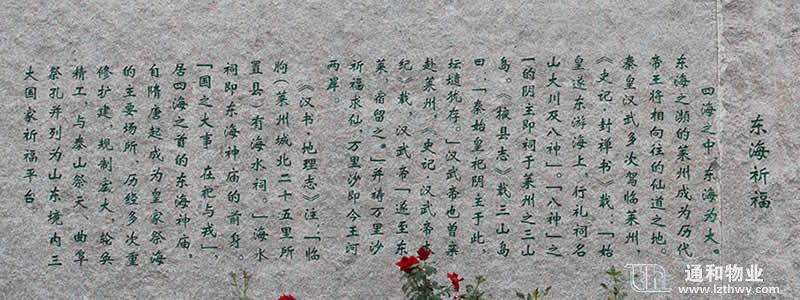 东海祈福
四海之中，东海为大。
东海之濒的莱州成为历代
帝王将相向往的仙道之地。
秦皇汉武多次驾临莱州，
《史记·封禅书》载：「始
皇遂东游海上，行礼祠名
山大川及八神」。「八神」之
一的阴主即祠于莱州之三山
岛。《掖县志》载三山岛
曰：「秦始皇祀阴主于此，
坛壝犹存。」汉武帝也曾亲
赴莱州，《史记·汉武帝本
纪》载，汉武帝「遂至东
莱，宿留之。」并祷万里沙
祈福求仙，万里沙即今王河
两岸。
《汉书·地理志》注：「临
朐（莱州城北二十五里所
置县）有海水祠。」海水
祠即东海神庙的前身。
「国之大事，在祀与戎」，
居四海之首的东海神庙，
自隋唐起成为皇家祭海
的主要场所，历经多次重
修扩建，规制宏大，轮奂
精工，与泰山祭天、曲阜
祭孔并列为山东境内三
大国家祈福平台
通和物业
www.lzthwy.com